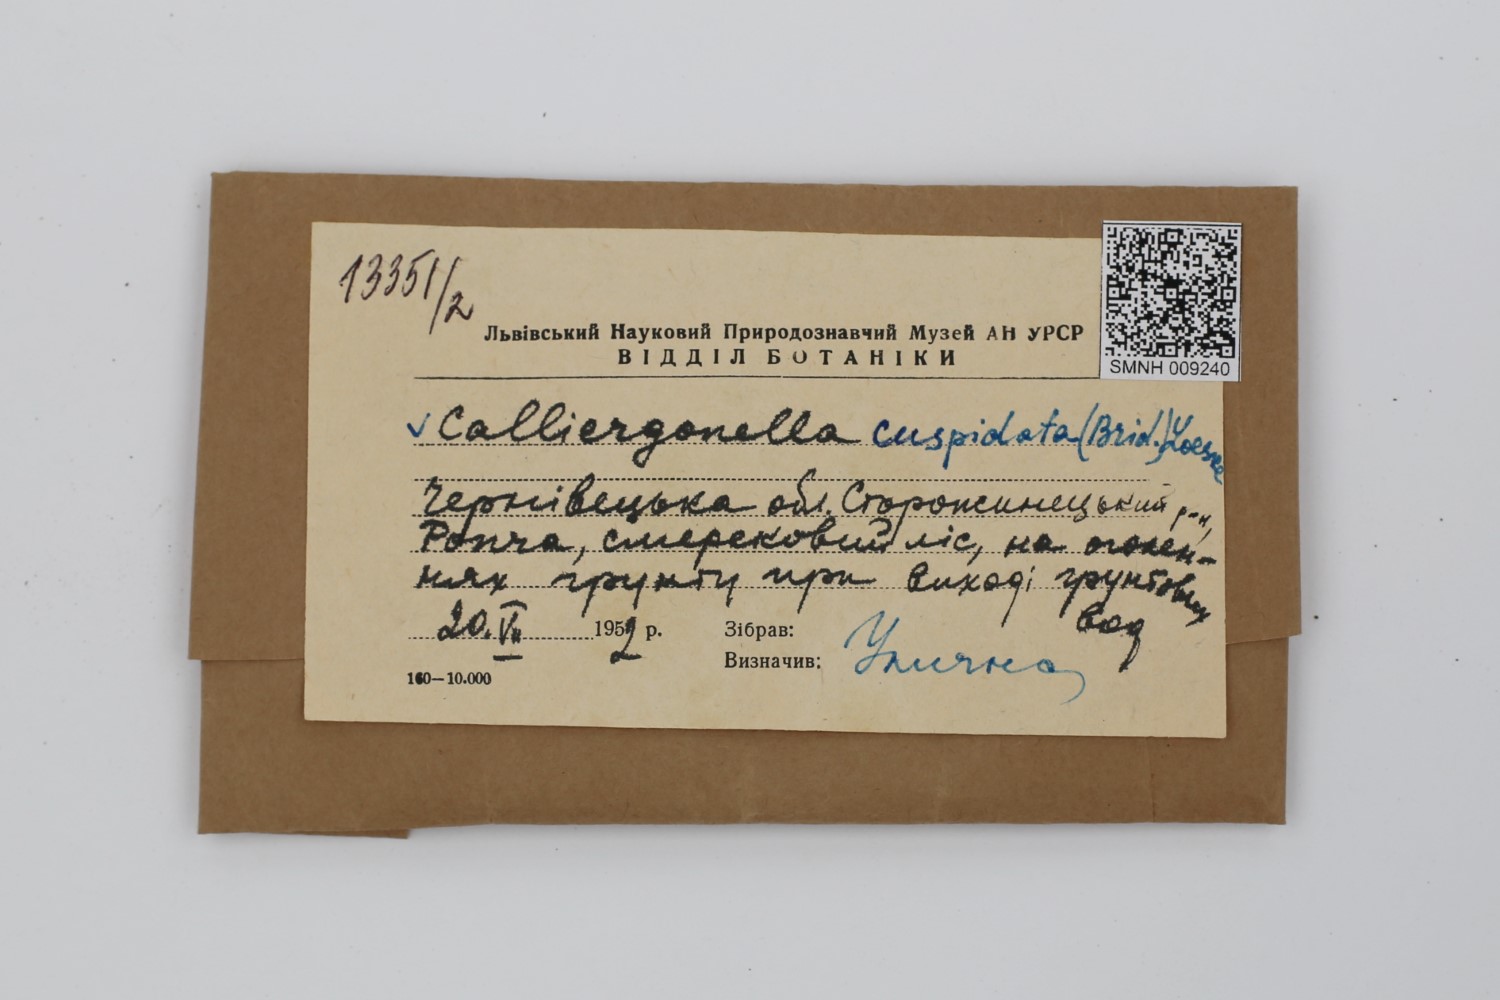 13351/2
Львівський Науковий Природознавчий Музей АН УРСР
ВІДДІЛ БОТАНІКИ
SMNH 009240
✓ Calliergonella cuspidata (Brid.) Loeske
Чернівецька обл. Сторожинецький р-н,
Ропча, смерековий ліс, на оголен-
нях грунту при виході грунтових
вод
20.VII 1952 р.
Зібрав:
Визначив: Улична
160—10.000